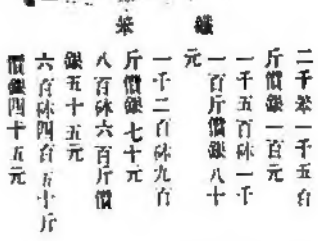 二千笨一千五百
斤價銀一百元
一千五百砵一千
一百斤價銀八十
元
一千二百砵九百
斤價銀七十元
八百砵六百斤價
銀五十五元
六百砵四百五十斤
價銀四十五元